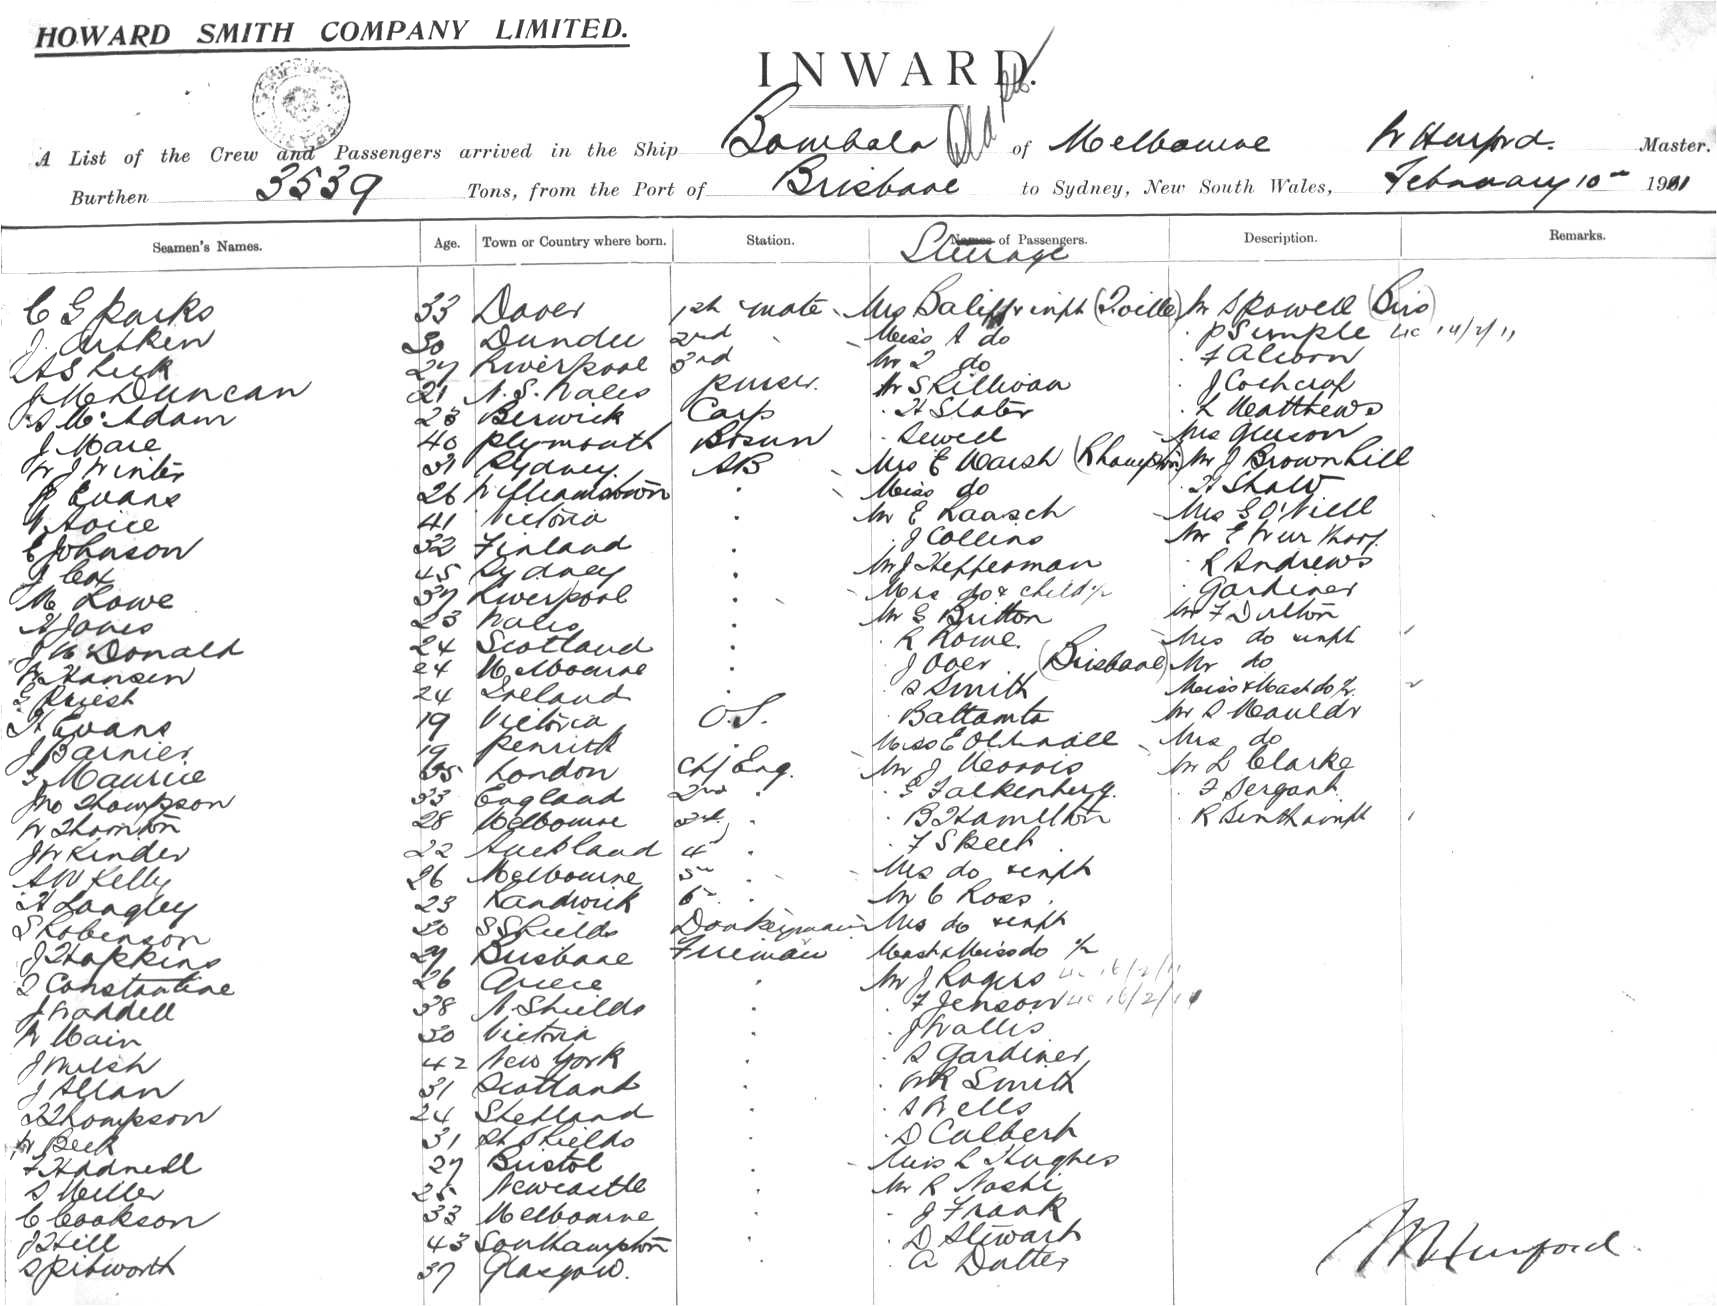 HOWARD SMITH COMPANY LIMITED.
INWARD.
A List of the Crew and Passengers arrived in the Ship Bombala of Melbourne W Hurford. Master.
Burthen 3539 Tons, from the Port of Brisbane to Sydney, New South Wales, February 10th 1911
Seamen's Names. Age. Town or Country where born. Station. Names of Passengers. Description. Remarks.
Steerage
C G Parks 33 Dover 1st mate Mrs Baliff & inft (T.ville) Mr S Powell (Bris)
J. Aitken 30 Dundee 2nd Miss A do P Semple 14/2/11
27 Liverpool 3rd Mr do F
J McDuncan 21 N.S. Wales purser. Mr S Killivan J
McAdam 23 Berwick Carp H Slater L Matthews
J Mare 40 Plymouth Bosun Sewell Mrs Gleeson
W J Winter 31 Sydney. AB Mrs E Marsh Mr J Brownhill
Evans 26 Williamstown Miss do H Shaw
41 Victoria Mr E Laasch Mrs G O'Niell
E Johnson 32 Finland J Collins Mr E
J Cox 45 Sydney Mr J Hefferman R Andrews
M Lowe 37 Liverpool Mrs do & child Gardiner
H Jones 23 Wales Mr G Britton Mr F Dutton
J McDonald 24 Scotland R Rowe. Mrs do & inft
W Hansen 24 Melbourne J (Brisbane) Mr do
G Priest 24 Ireland S Smith Miss & Mast do
H Evans 19 Victoria O.S. Mr S
J Barnier. 19 Penrith Miss E Mrs do
G Maurice 35 London Chf Eng. Mr J Morris Mr L Clarke
Jno Thompson 33 England 2nd G Falkenberg. F Sergant
W Thornton 28 Melbourne 3rd B Hamilton R
J W Kinder 22 Auckland 4 F Skeet
A W Kelly 26 Melbourne 5th Mrs do & inft
H Langley 23 Randwick 6th Mr C Ross.
S Robinson 30 S Shields Donkeyman Mrs do & inft
J Hopkins 27 Brisbane Fireman Mast & Miss do
Constantine 26 Greece Mr J Rogers 16/2/11
J Waddell 38 N. Shields F Jenson 16/2/11
W Main 30 Victoria J Wallis
J Welsh 42 New York S Gardiner
J Allan 31 Scotland Smith
Thompson 24 Shetland S Wells
W Beck 31 Shields D Calbert
F Hadnell 27 Bristol Miss L Hughes
S Miller 25 Newcastle Mr R Nashi
C Cookson 33 Melbourne J Frank
J Hill 43 Southampton D Stewart
S Pitworth 37 Glasgow. A Dutter
W Hurford